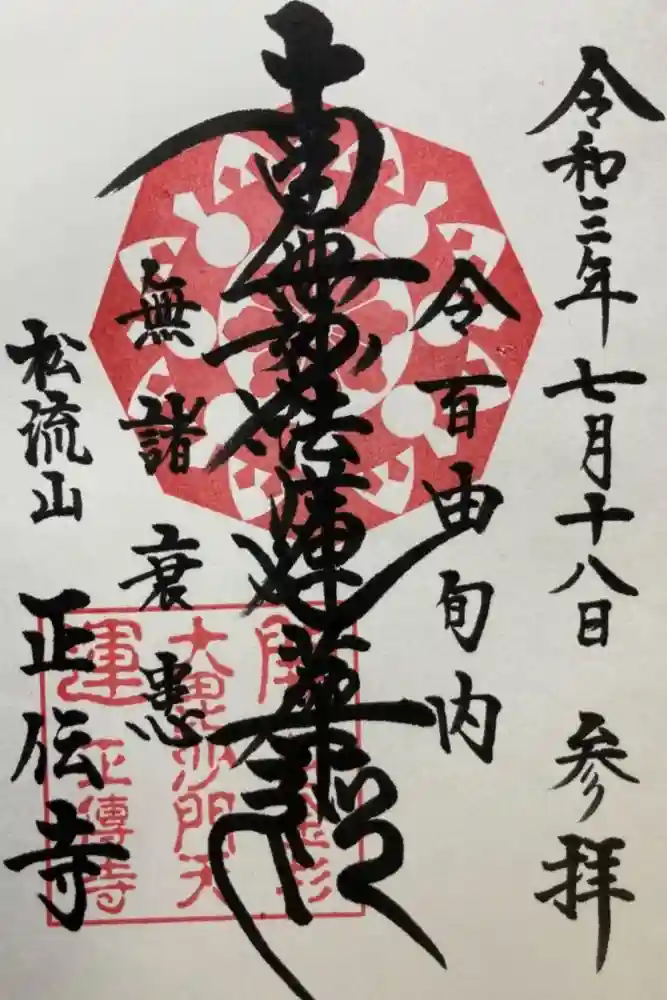 令和三年七月十八日 参拝
令百由旬内
南無妙法蓮華経
無諸衰患
松流山 正伝寺
大毘沙門天
運 正傳寺